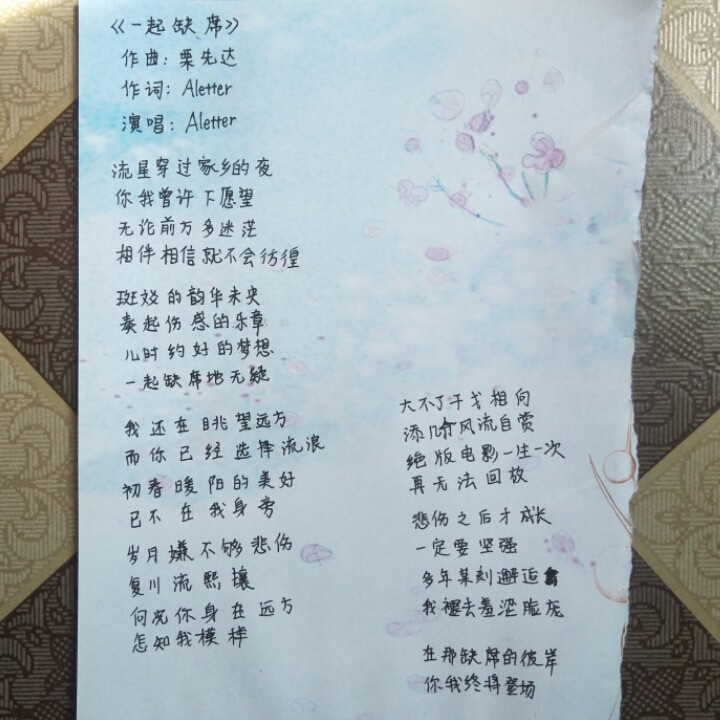 《一起缺席》
作曲：栗先达
作词：Aletter
演唱：Aletter
流星穿过家乡的夜
你我曾许下愿望
无论前方多迷茫
相伴相信就不会彷徨
斑斓的韵华未央
奏起伤感的乐章
儿时约好的梦想
一起缺席地无疑
我还在眺望远方
而你已经选择流浪
初春暖阳的美好
已不在我身旁
岁月嫌不够悲伤
复川流熙攘
何况你身在远方
怎知我模样
大不了干戈相向
添几分风流自赏
绝版电影一生一次
再无法回放
悲伤之后才成长
一定要坚强
多年某刻邂逅
我褪去羞涩脸庞
在那缺席的彼岸
你我终将登场